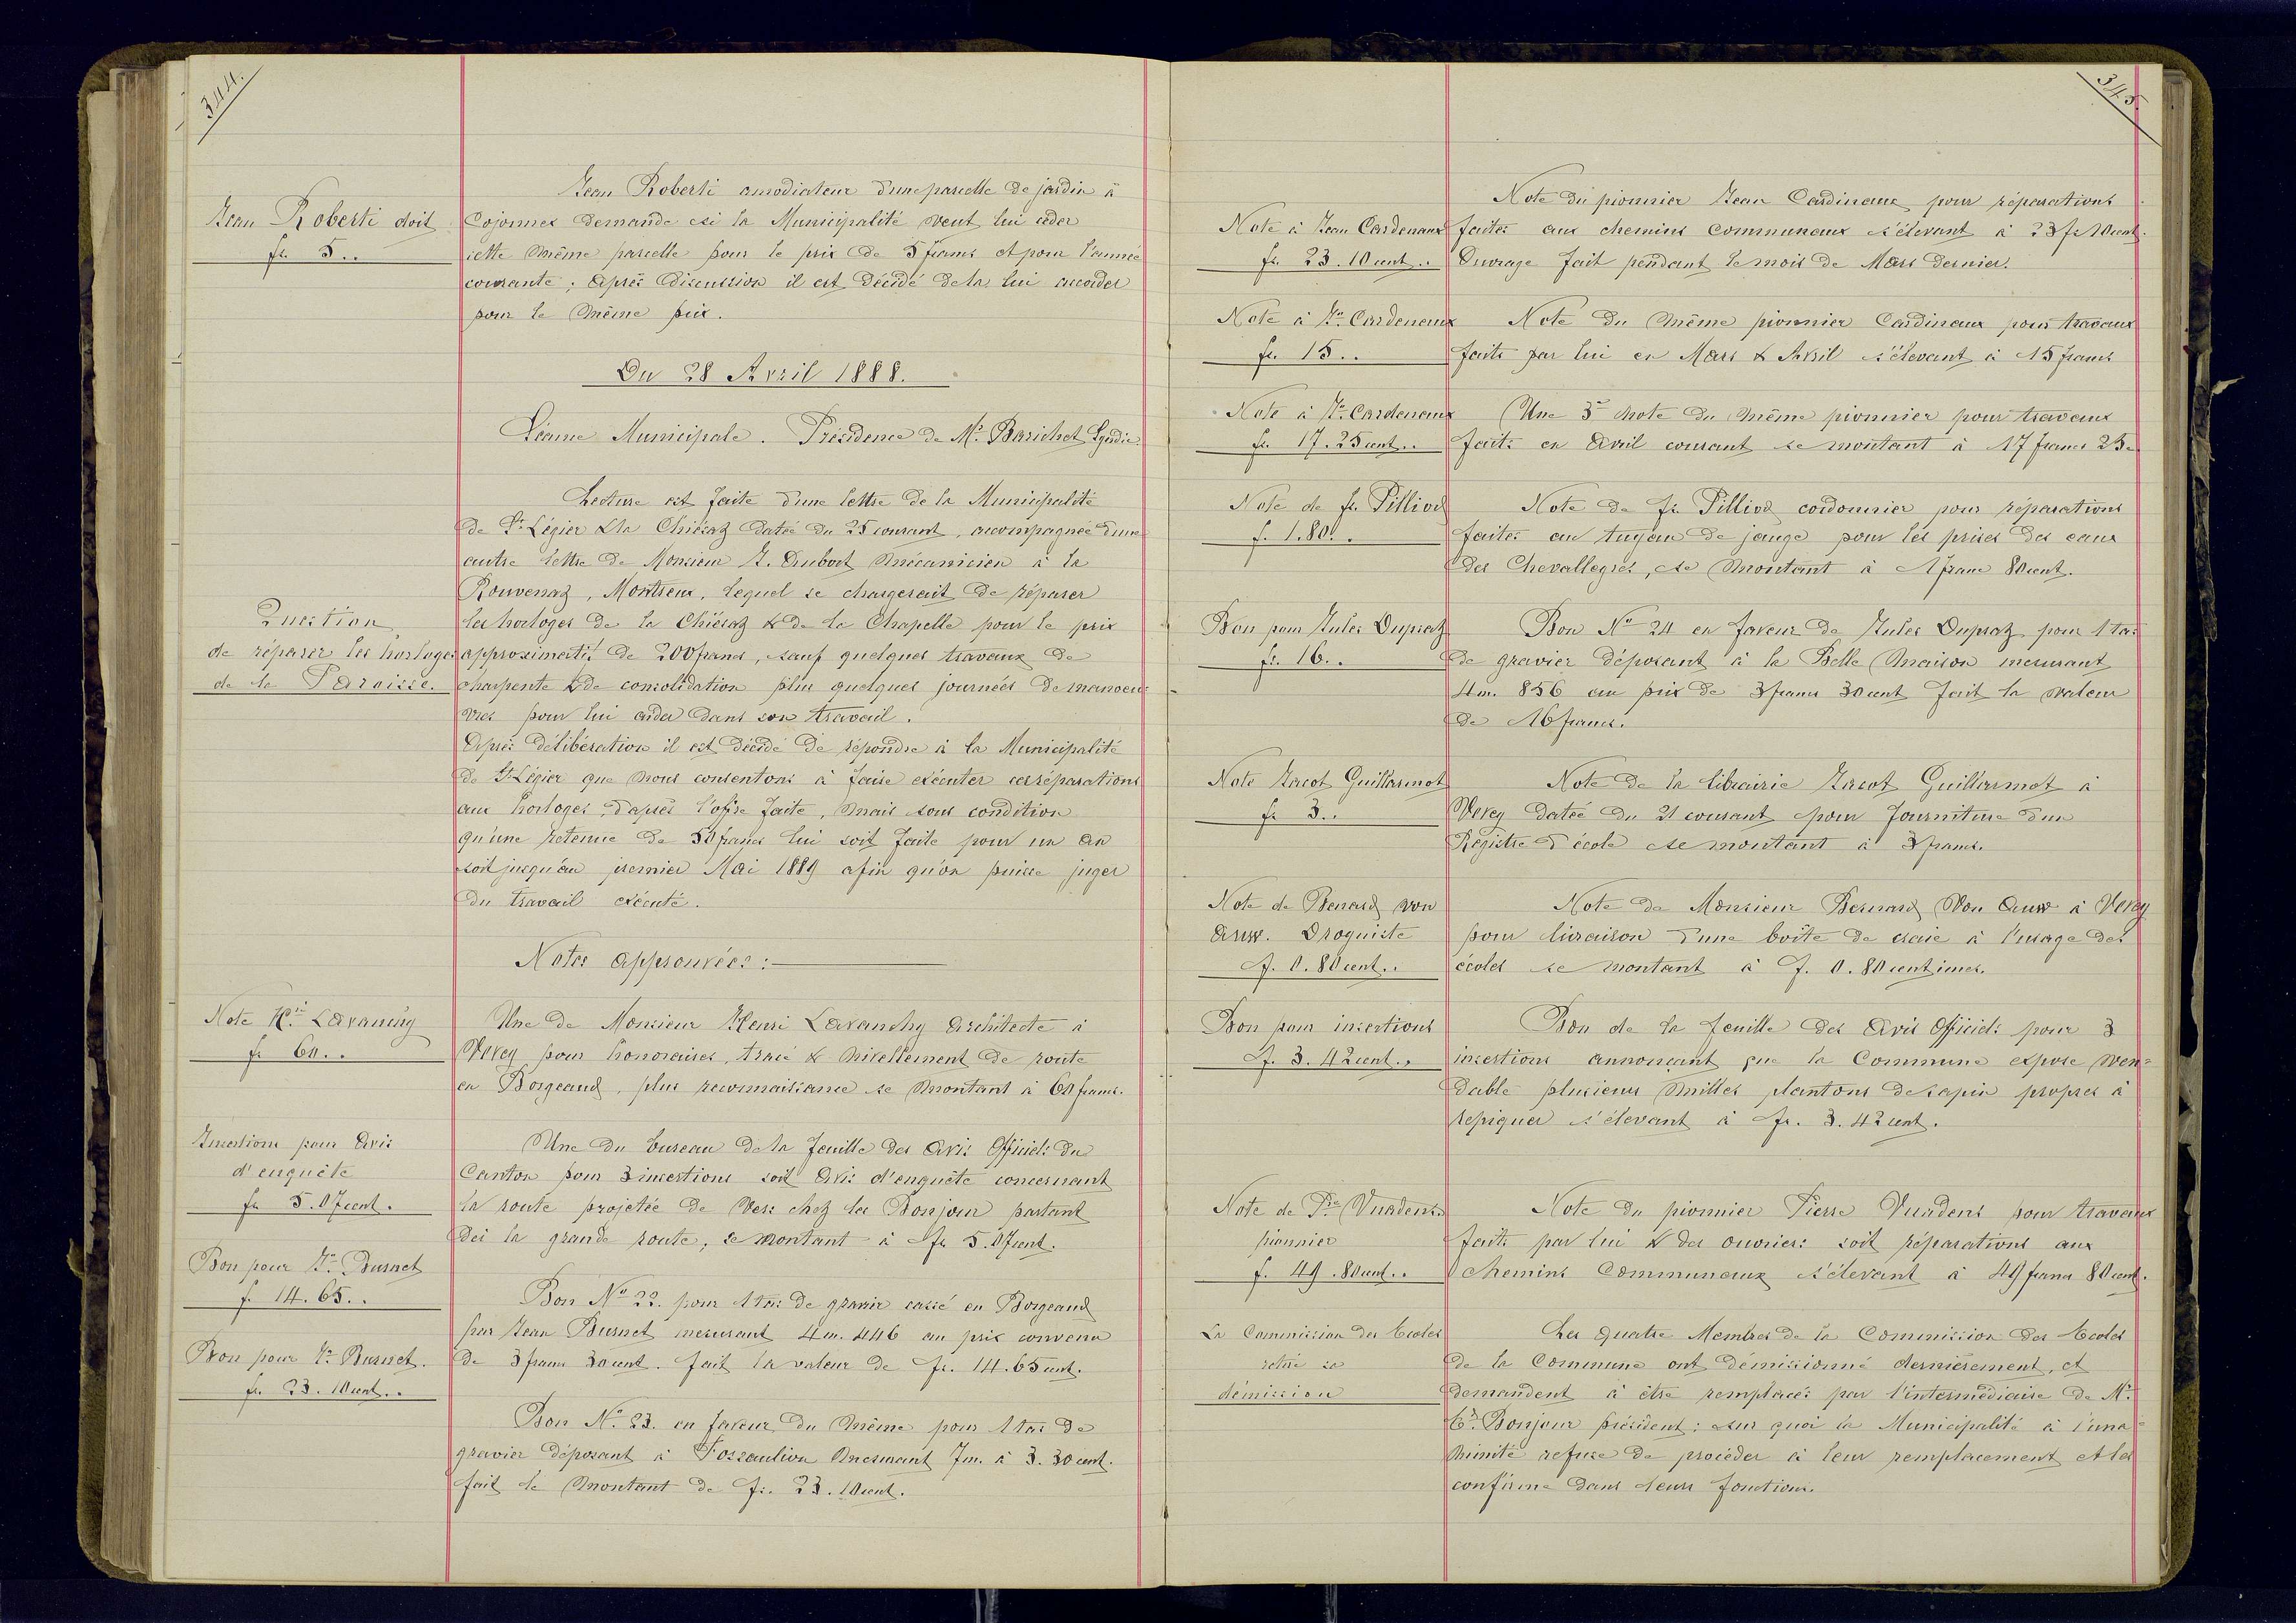 344.
Jean Roberti doit
fr. 5..
Jean Roberti amodiateur d'une parcelle de jardin à
Cojonnex demande si la Municipalité veut lui céder
cette même parcelle pour le prix de 5 francs et pour l'année
courante; après discussion il est décidé de la lui accorder
pour le même prix.
Du 28 Avril 1888.
Séance Municipale. Présidence de Mr. Barichet Syndic.
Question
de réparer les horloges
de la Paroisse.
Lecture est faite d'une lettre de la Municipalité
de St. Légier & la Chiésaz datée du 25 courant, accompagnée d'une
autre lettre de Monsieur J. Aubort mécanicien à la
Rouvenaz, Montreux, lequel se chargerait de réparer
les horloges de la Chiésaz & de la Chapelle pour le prix
approximatif de 200 francs, sauf quelques travaux de
charpente & de consolidation plus quelques journées de manoeu-
vres pour lui aider dans son travail.
Après délibération il est décidé de répondre à la Municipalité
de St. Légier que nous consentons à faire exécuter ces réparations
aux horloges, d'après l'offre faite, mais sous condition
qu'une retenue de 50 francs lui soit faite pour un an
soit jusqu'au premier Mai 1889 afin qu'on puisse juger
du travail exécuté.
Notes approuvées:
Note Hri. Lavanchy
fr 60..
Une de Monsieur Henri Lavanchy architecte à
Vevey pour honoraires, tracé & nivellement de route
en Borgeaud, plus reconnaissance se montant à 60 francs.
Insertions pour Avis
d'enquête
fr 5.07 cent.
Une du bureau de la feuille des Avis Officiels du
Canton pour 3 insertions soit Avis d'enquête concernant
la route projetée de Vers chez les Bonjour partant
dès la grande route, se montant à fr 5.07 cent.
Bon pour Jn. Bursnet
f. 14.65..
Bon No 22. pour 1 tas de gravier cassé en Borgeaud
par Jean Bursnet mesurant 4 m. 446 au prix convenu
de 3 francs 30 cent. fait la valeur de fr. 14.65 cent.
Bon pour Jn. Bursnet.
fr. 23.10 cent..
Bon No. 23. en faveur du même pour 1 tas de
gravier déposant à Fossaulion mesurant 7 m. à 3.30 cent.
fait le montant de fr. 23.10 cent.
345.
Note à Jean Cardenaux
fr. 23.10 cent..
Note du pionnier Jean Cardinaux pour réparations
faites aux chemins communaux s'élevant à 23 fr 10 cent.
Ouvrage fait pendant le mois de Mars dernier.
Note à Jn. Cardenaux
fr. 15..
Note du même pionnier Cardinaux pour travaux
faits par lui en Mars & Avril s'élevant à 15 francs
Note à Jn. Cardenaux
fr. 17.25 cent..
Une 3e note du même pionnier pour travaux
faits en Avril courant se montant à 17 francs 25 c
Note de fr. Pilliod
f. 1.80..
Note de fr. Pilliod cordonnier pour réparations
faites au tuyau de jauge pour les prises des eaux
des Chevallegres, se montant à 1 franc 80 cent.
Bon pour Jules Dupraz
fr. 16..
Bon No 24 en faveur de Jules Dupraz pour 1 tas
de gravier déposant à la Belle Maison mesurant
4 m. 856 au prix de 3 francs 30 cent fait la valeur
de 16 francs.
Note Jacot Guillarmot
fr 3..
Note de la librairie Jacot Guillarmot à
Vevey datée du 21 courant pour fourniture d'un
Registre d'école se montant à 3 francs.
Note de Benard von
Auw. Droguiste
f. 0.80 cent..
Note de Monsieur Bernard Von Auw à Vevey
pour livraison d'une boîte de craie à l'usage des
écoles se montant à f. 0.80 centimes.
Bon pour insertions
f. 3.42 cent..
Bon de la feuille des Avis Officiels pour 3
insertions annonçant que la Commune expose ven=
dable plusieurs milles plantons de sapin propres à
repiquer s'élevant à fr. 3.42 cent.
Note de Pre. Vuadens.
pionnier
f. 49.80 cent..
Note du pionnier Pierre Vuadens pour travaux
faits par lui & des ouvriers soit réparations aux
chemins communaux s'élevant à 49 francs 80 cent.
La Commission des Ecoles
retire sa
démission
Les quatre Membres de la Commission des Ecoles
de la Commune ont démissionné dernièrement, et
demandent à être remplacés par l'intermédiaire de Mr.
Bonjour président; sur quoi la Municipalité à l'una-
nimité refuse de procéder à leur remplacement et les
confirme dans leurs fonctions.